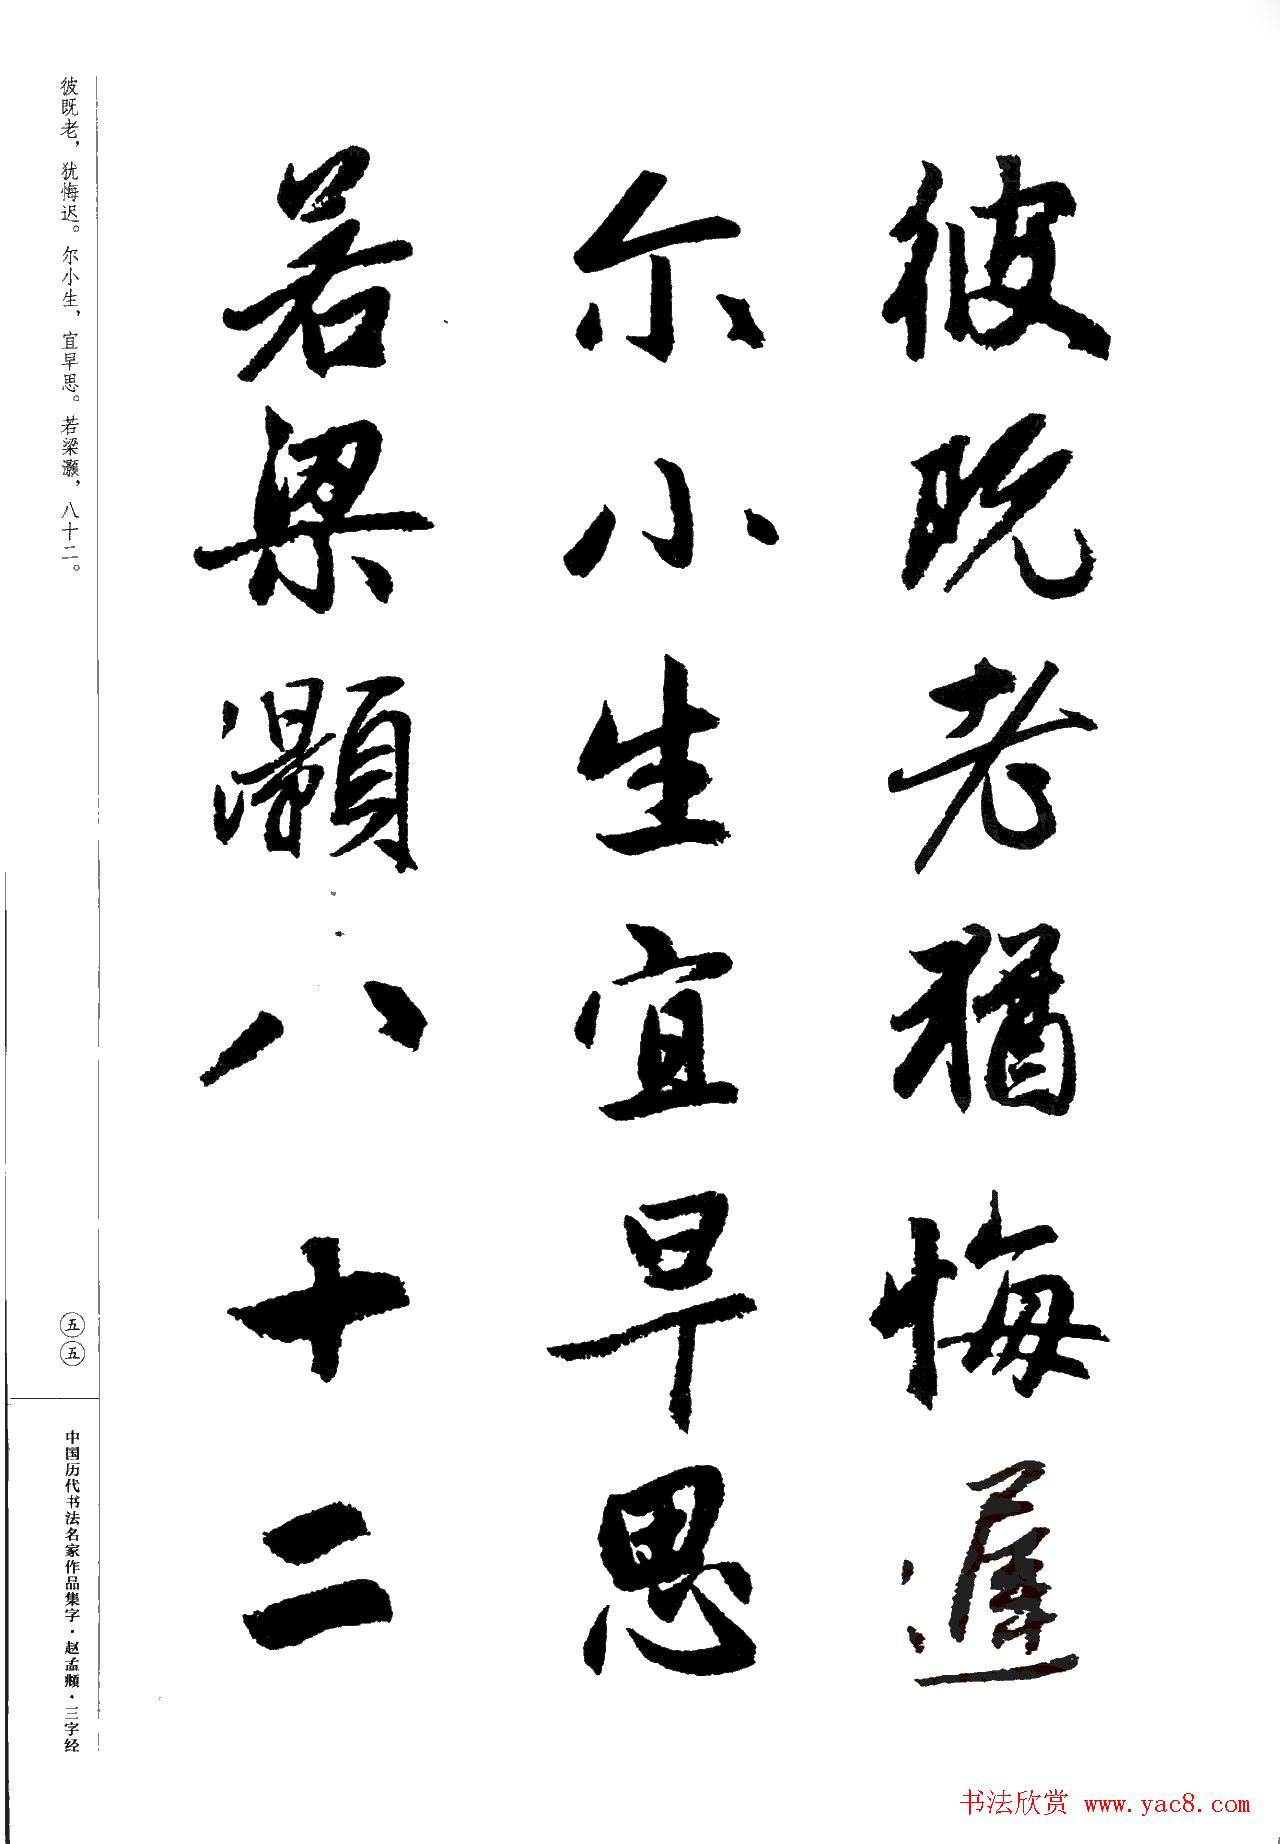 彼既老猶悔遲
尔小生宜早思
若梁灝八十二
彼既老，犹悔迟。尔小生，宜早思。若梁灏，八十二。
五五
中国历代书法名家作品集字·赵孟頫·三字经
书法欣赏 www.yac8.com